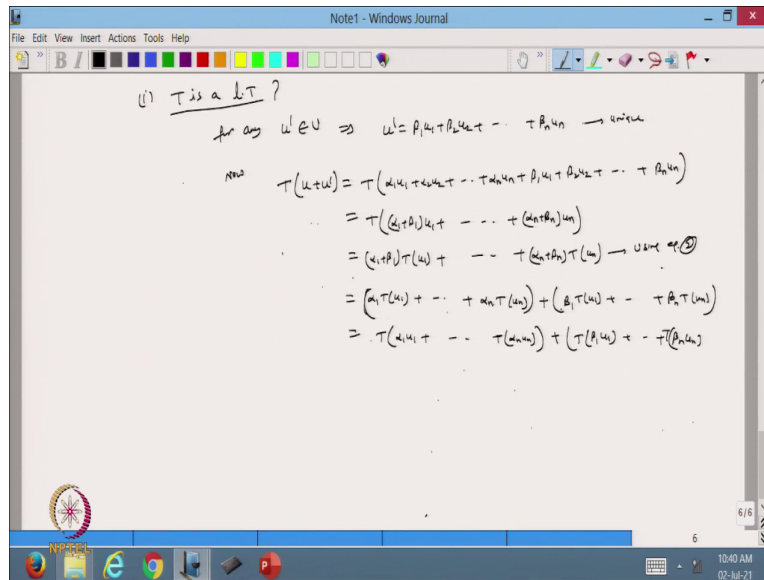 Note1 - Windows Journal
File Edit View Insert Actions Tools Help
(i) T is a L.T ?
for any u' ∈ U ⇒ u' = β₁u₁+β₂u₂+ - - +βₙuₙ → unique
Now T(u+u') = T(α₁u₁+α₂u₂+ - - +αₙuₙ+β₁u₁+β₂u₂+ - - + βₙuₙ)
= T((α₁+β₁)u₁+ - - - + (αₙ+βₙ)uₙ)
= (α₁+β₁)T(u₁) + - - +(αₙ+βₙ)T(uₙ) → using eq. ②
= (α₁T(u₁) + - - + αₙT(uₙ)) + (β₁T(u₁) + - + βₙT(uₙ))
= T(α₁u₁ + - - T(αₙuₙ)) + (T(β₁u₁) + - +T(βₙuₙ)
6/6
6
NPTEL
10:40 AM
02-Jul-21